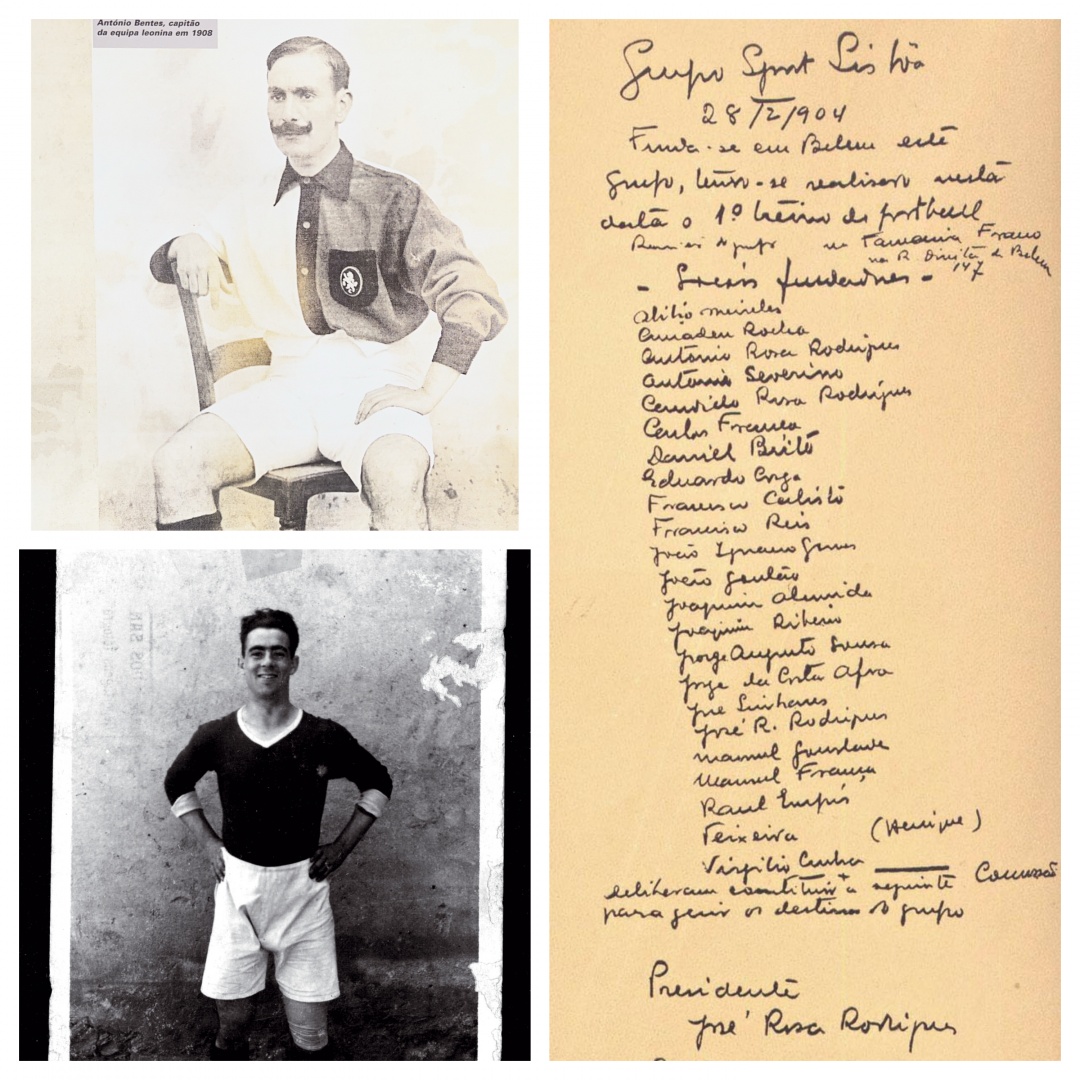 António Bentes, capitão
da equipa leonina em 1908
Grupo Sport Lisbôa
28/2/904
Funda-se em Belem este
grupo, tendo-se realisado nesta
data o 1º treino de football
Reuniões do grupo na Farmacia Franco
na R. Direita de Belem
147
- Socios fundadores -
Abilio Meireles
Amadeu Rocha
António Rosa Rodrigues
António Severino
Candido Rosa Rodrigues
Carlos França
Daniel Brito
Eduardo Corga
Francisco Calisto
Francisco Reis
João Ignacio Gomes
João Goulão
Joaquim Almeida
Joaquim Ribeiro
Jorge Augusto Sousa
Jorge da Costa Afra
José Linhares
José R. Rodrigues
Manuel Gourlade
Manuel França
Raul Empis
Teixeira (Henrique)
Virgilio Cunha
deliberam constituir a seguinte Comissão
para gerir os destinos do grupo
Presidente
José Rosa Rodrigues